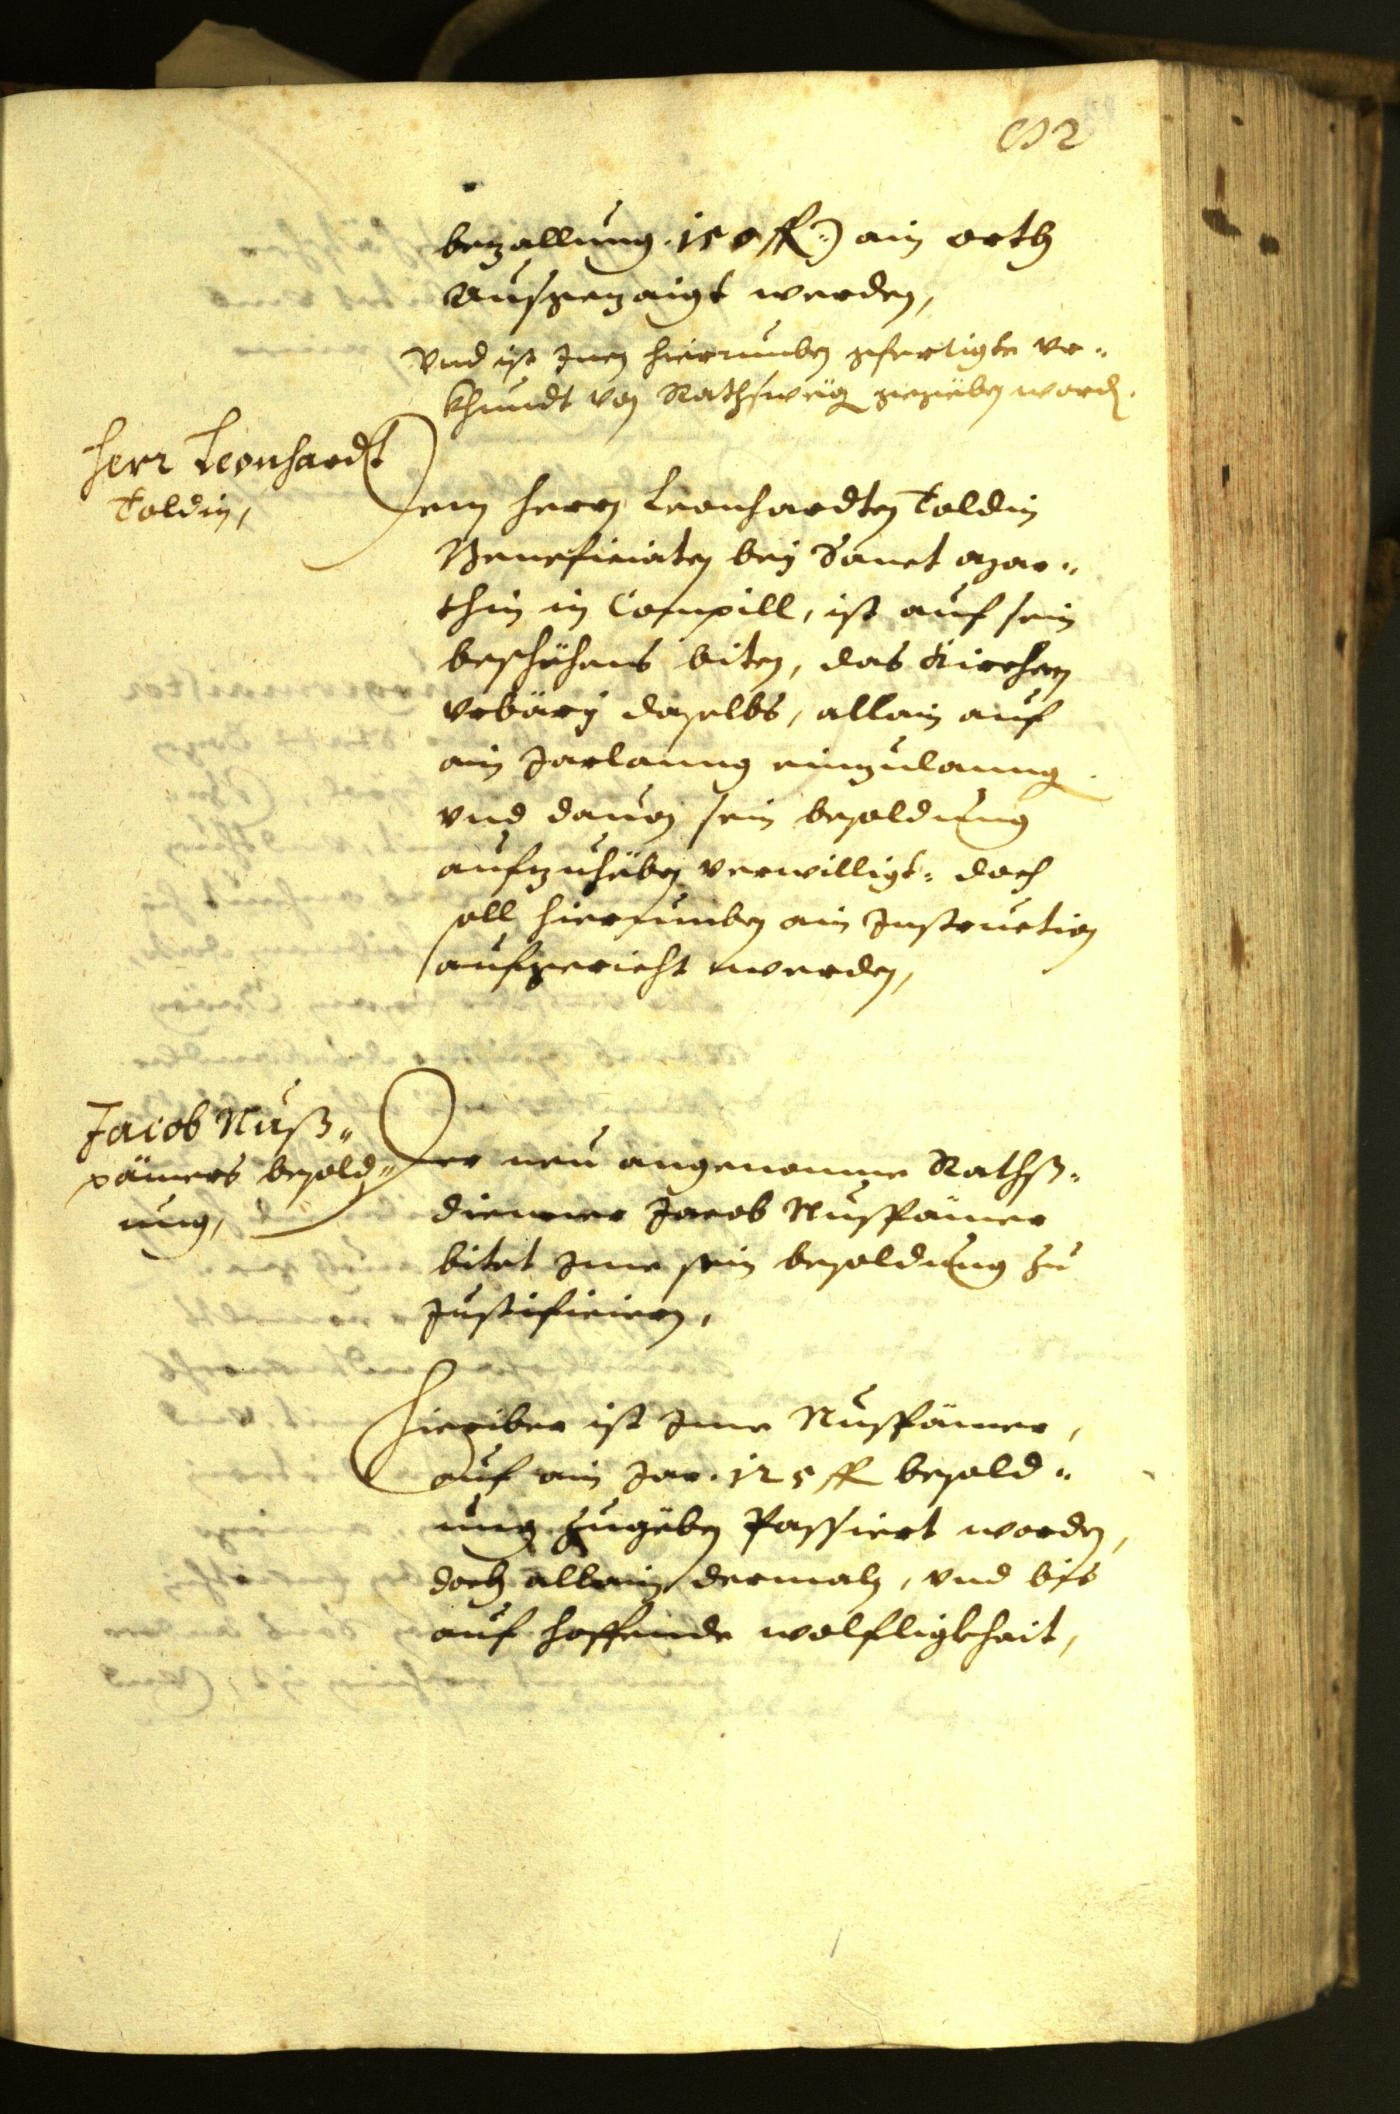 bezallung 150 fl:) ain orth
Ausgezaigt werden,
Vnd ist Jnen hierumben gfertigte Vr-
khundt von Rathsweg gegeben word.
Herr Leonhardt
Toldin,
Dem herrn Leonhardten Toldin
Beneficiaten bey Sanct Mar-
thin in Campill, ist auf sein
beschehens biten, das Kirchen
Vrbary daselbs, allain auf
ain Jarlanng einzulanng
vnd dauon sein besoldung
aufzuheben verwilligt: doch
soll hierumben ain Jnstruction
aufgericht werden,
Jacob Nuß-
pämers besold-
ung,
Der neu angenomne Rathß-
diener Jacob Nuspämer
bitet Jme sein besoldung zu
Justificiern,
Hierüber ist Jme Nuspämer,
auf ain Jar 125 fl besold-
ung zugeben Passiert worden,
doch allain dermaln, vnd bis
auf hoffende wolfligkhait,